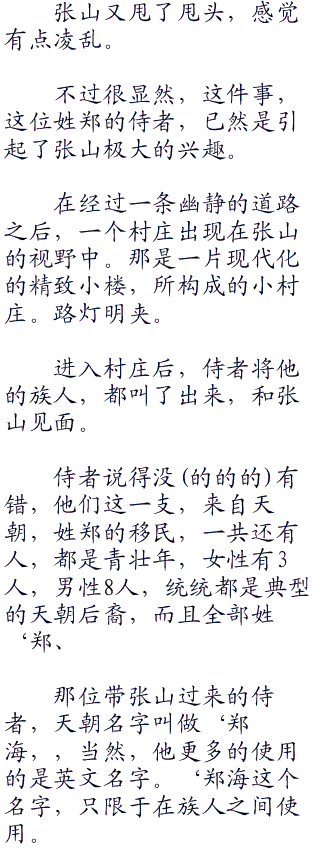 张山又甩了甩头，感觉
有点凌乱。
不过很显然，这件事，
这位姓郑的侍者，已然是引
起了张山极大的兴趣。
在经过一条幽静的道路
之后，一个村庄出现在张山
的视野中。那是一片现代化
的精致小楼，所构成的小村
庄。路灯明夹。
进入村庄后，侍者将他
的族人，都叫了出来，和张
山见面。
侍者说得没(的的的)有
错，他们这一支，来自天
朝，姓郑的移民，一共还有
人，都是青壮年，女性有3
人，男性8人，统统都是典型
的天朝后裔，而且全部姓
‘郑、
那位带张山过来的侍
者，天朝名字叫做‘郑
海，，当然，他更多的使用
的是英文名字。‘郑海这个
名字，只限于在族人之间使
用。